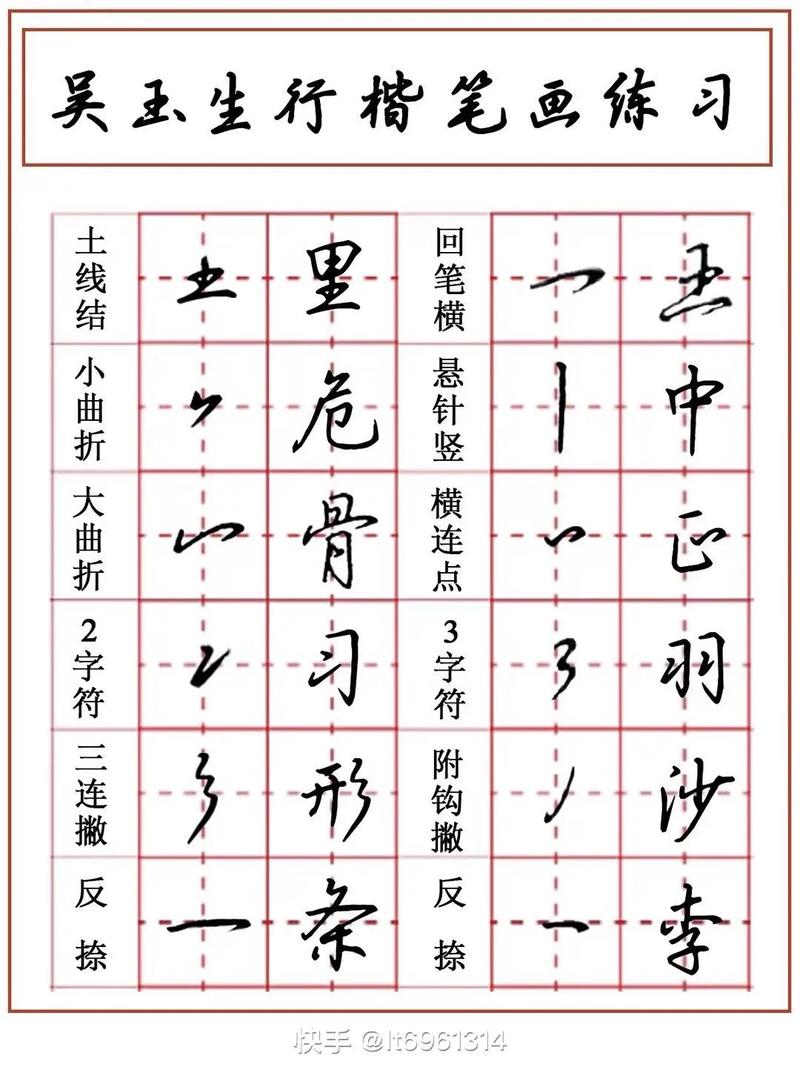 吴玉生行楷笔画练习
土线结 土 里 回笔横 一 王
小曲折 危 悬针竖 丨 中
大曲折 骨 横连点 正
2字符 2 习 3字符 3 羽
三连撇 形 附钩撇 丿 沙
反捺 一 条 反捺 一 李
快手 @lt6961314